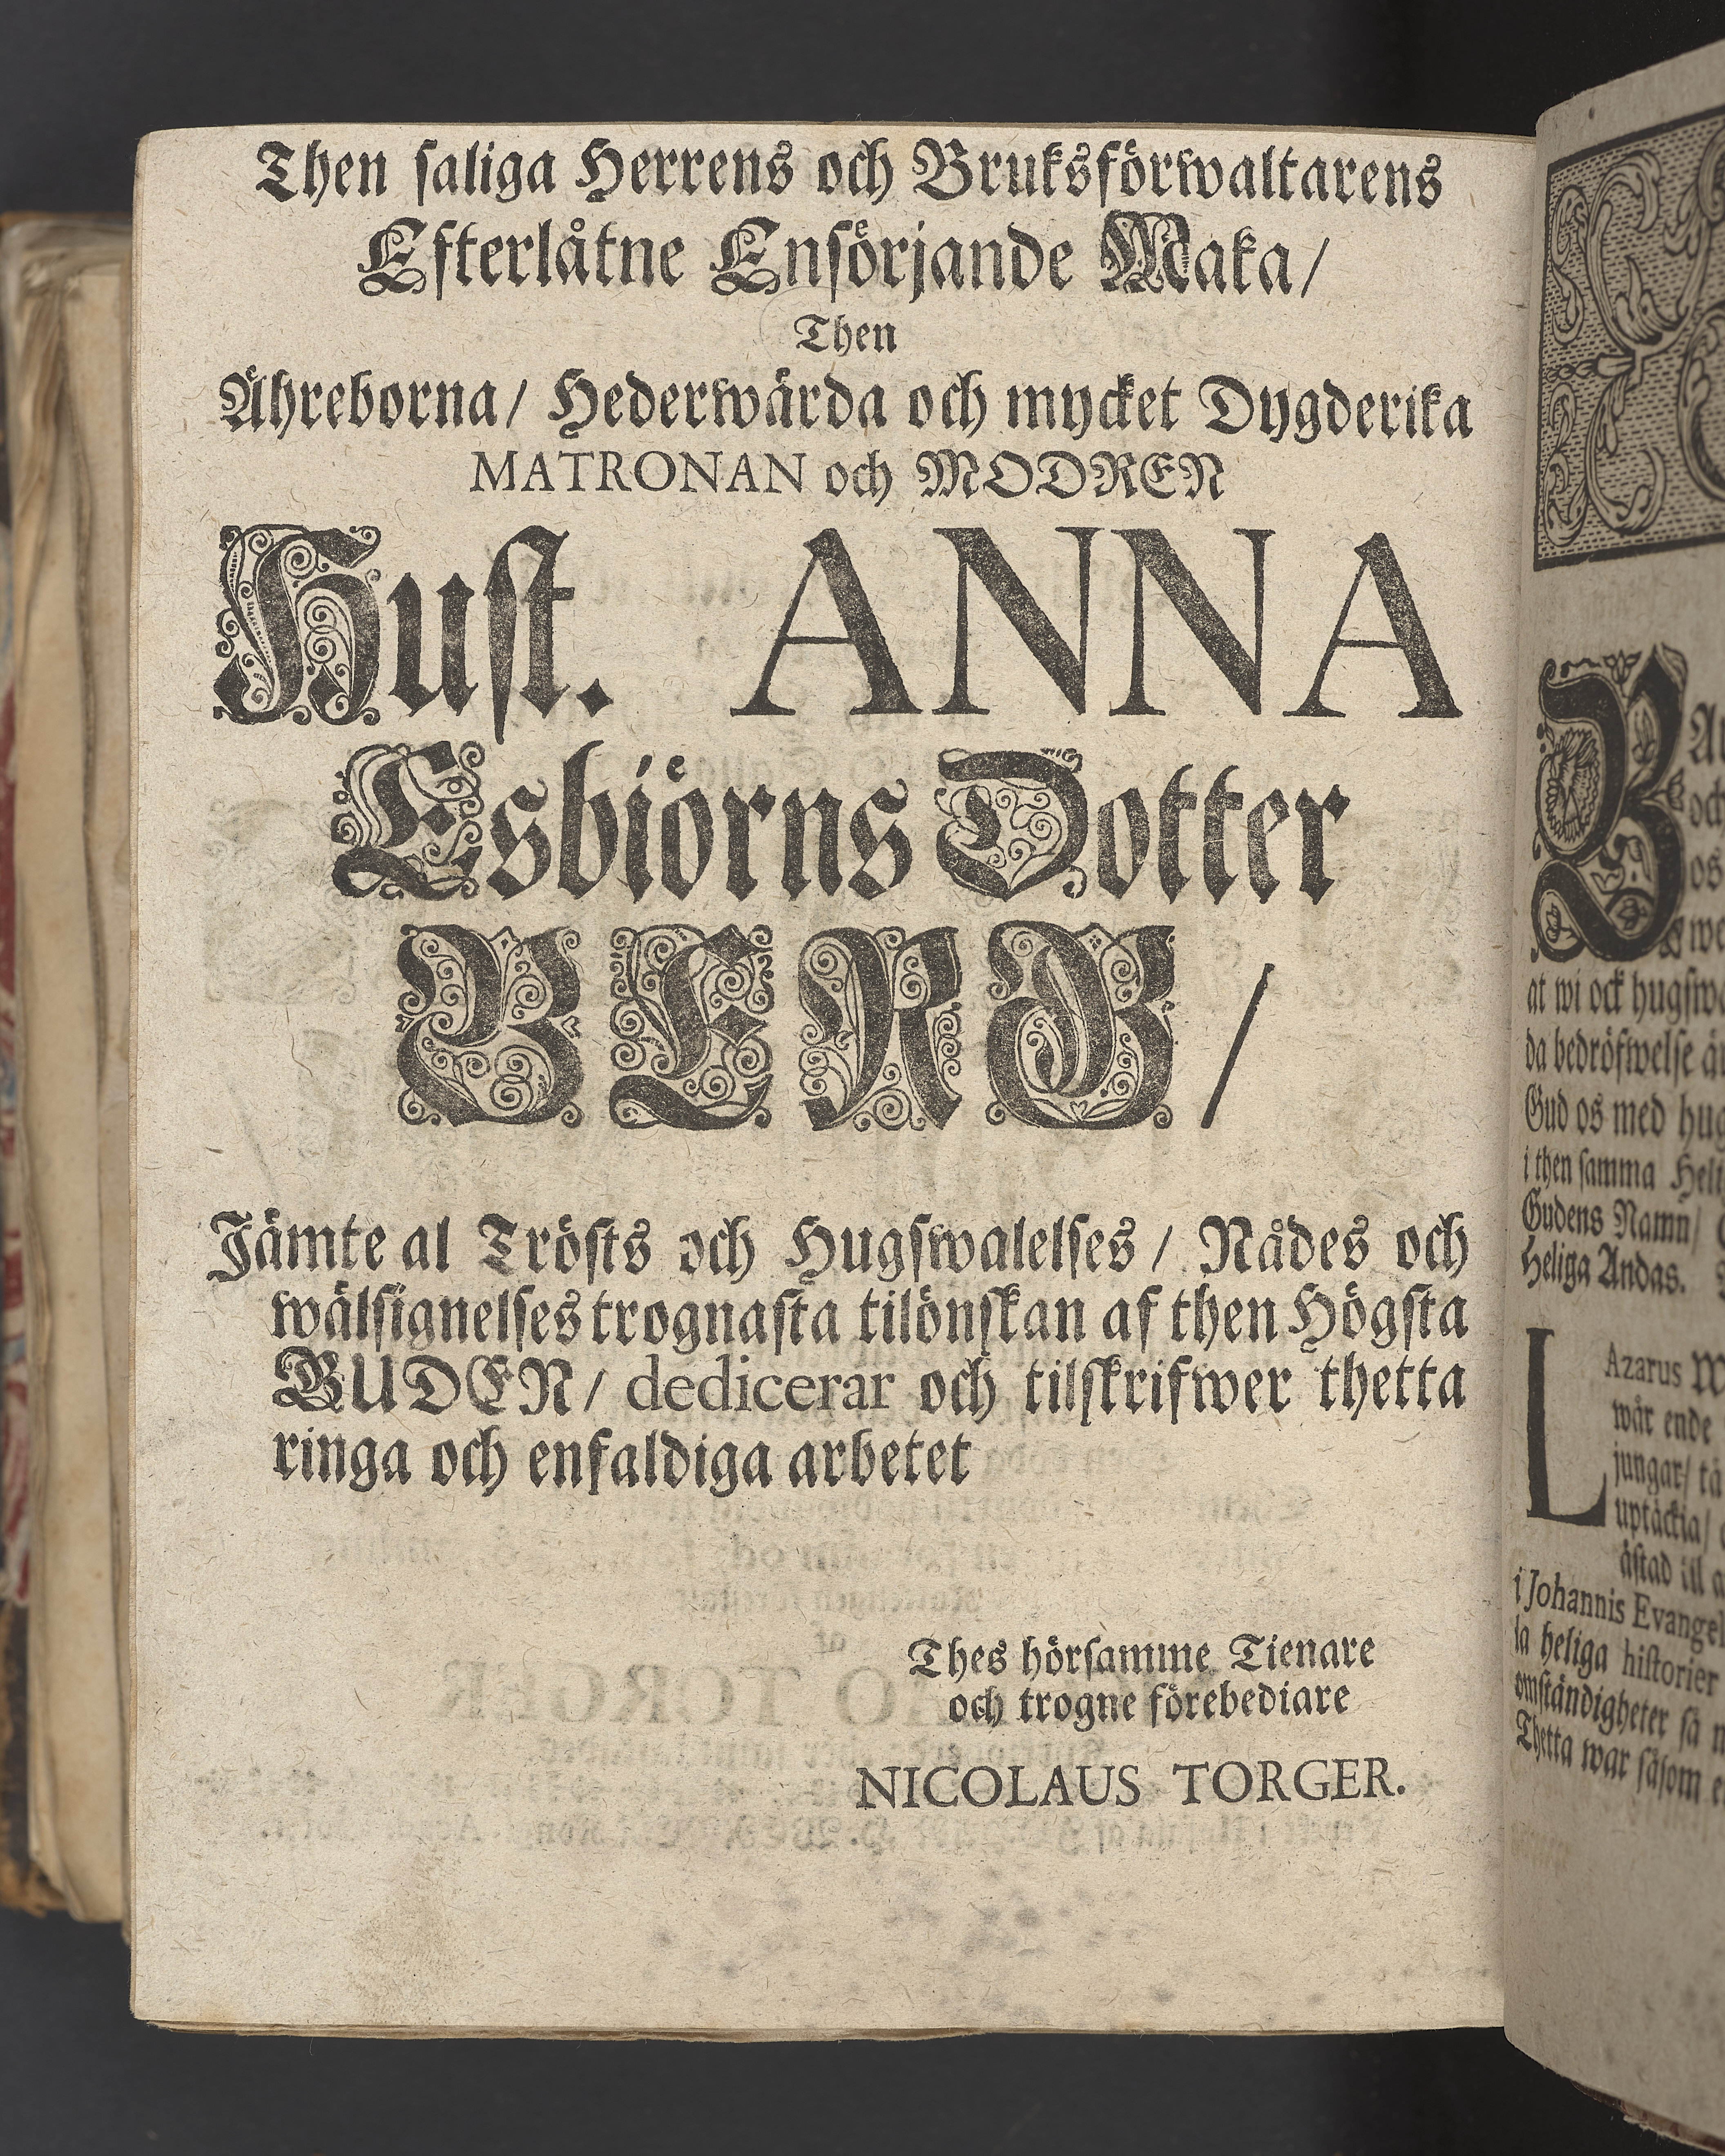 Then ſaliga Herrens och Bruksförwaltarens
Efterlåtne Ensörjande Maka/
Then
Ähreborna/ Hederwärda och mycket Dygderika
MATRONAN och MODREN
Huſt. ANNA
Esbiörns Dotter
BERG/
Jämte al Tröſts och Hugſwalelſes/ Nådes och
wälſignelſes trognaſta tilönſkan af then Högſta
GUDEN/ dedicerar och tilſkrifwer thetta
ringa och enfaldiga arbetet
Thes hörſamme Tienare
och trogne förebediare
NICOLAUS TORGER.
at wi ock
da bedröfwelſe
Gud os med
i then ſamma
Gudens Namn/
Heliga Andas.
LAzarus
wår ende
jungar/
uptäckia/
åſtad ill
i Johannis
la heliga hiſtorier
omſtändigheter ſå
Thetta war ſåſom